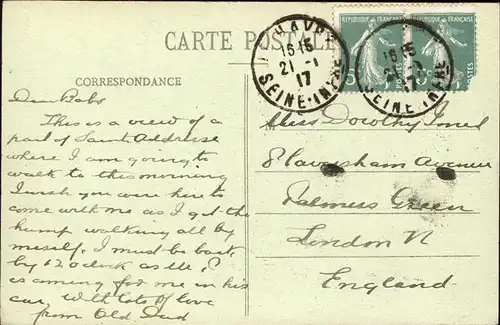 CARTE POSTALE
CORRESPONDANCE
Dear Babs
This is a view of a
part of Saint Addresse
where I am going to
walk to this morning
I wish you were here to
come with me as I get the
hump walking all by
myself. I must be back
by 12 o'clock as Mr
is coming for me in his
car, With lots of love
from Old Dad
RÉPUBLIQUE FRANÇAISE
RÉPUBLIQUE FRANÇAISE
POSTES
HAVRE
16 15
21 -1
17
SEINE-INFRE
16 15
21 -1
17
SEINE-INFRE
Miss Dorothy
8 Caversham Avenue
Palmers Green
London N
England